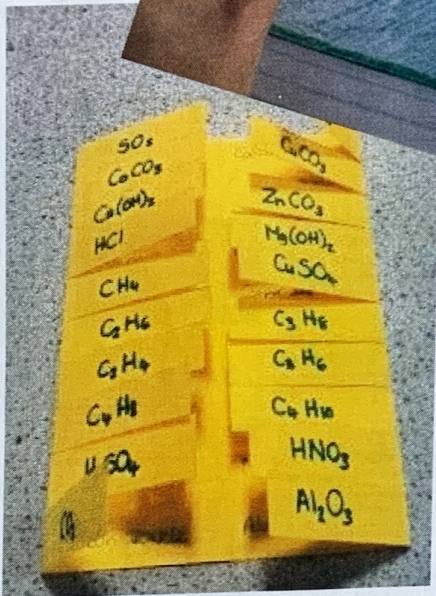 SO₃
CaCO₃
Ca(OH)₂
HCl
CH₄
C₂H₆
C₂H₄
C₄H₈
SO₄
CuCO₃
ZnCO₃
Mg(OH)₂
CuSO₄
C₃H₈
C₃H₆
C₄H₁₀
HNO₃
Al₂O₃